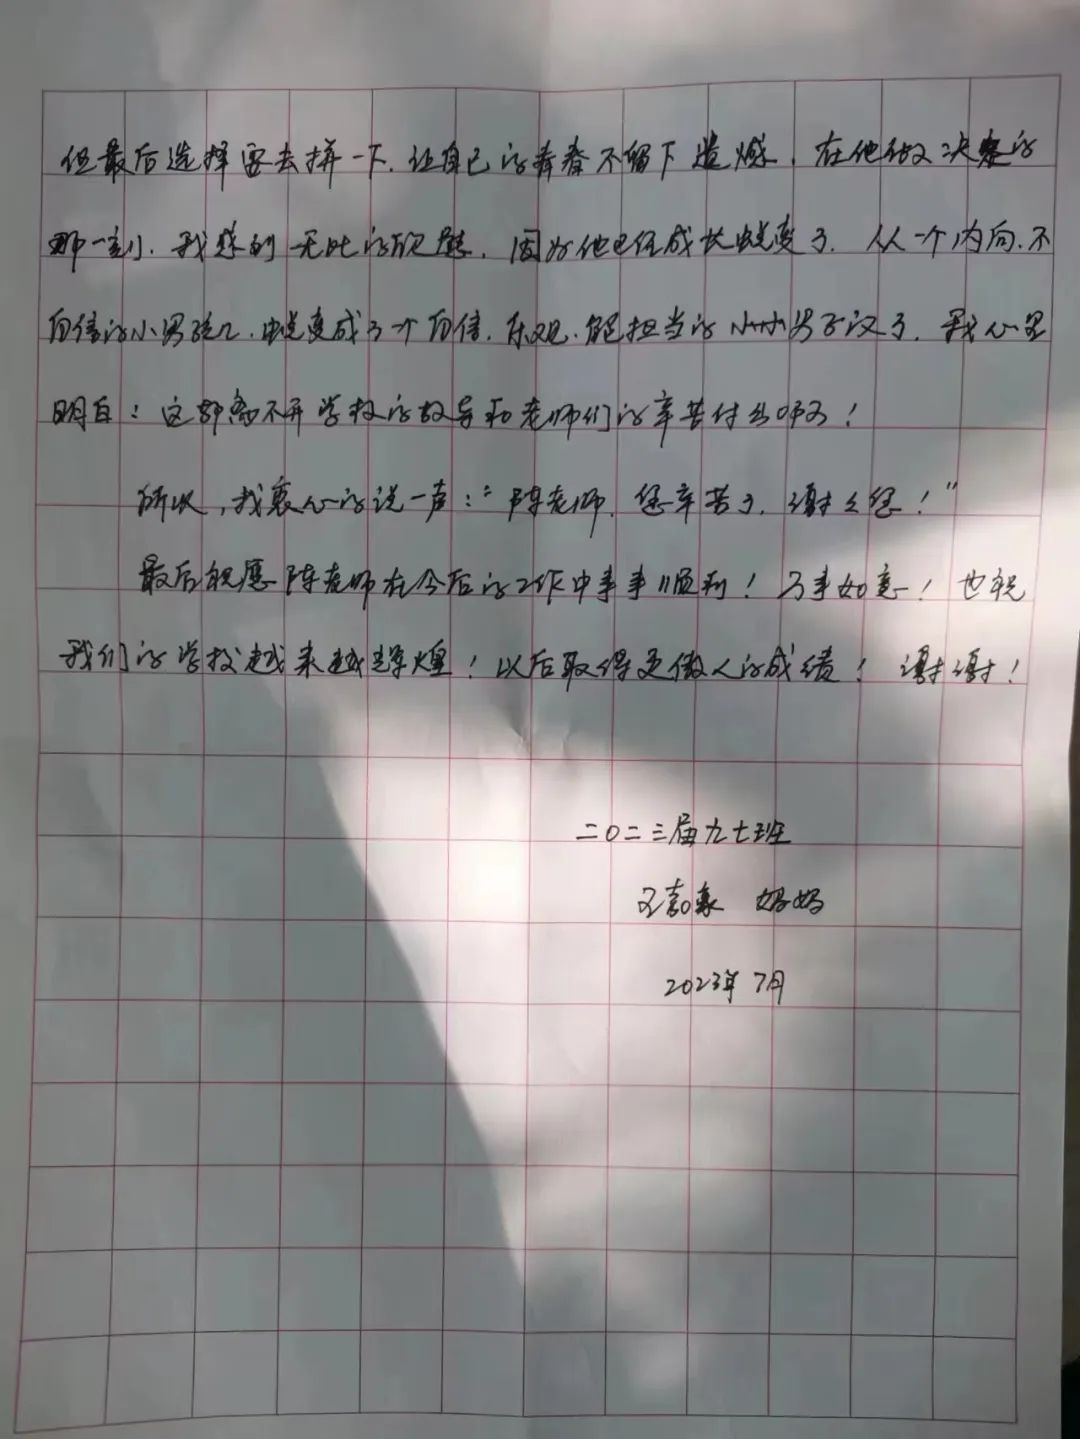 但最后选择要去拼一下.让自己的青春不留下遗憾.在他做决定的
那一刻.我感到无比的欣慰.因为他已经成长蜕变了.从一个内向.不
自信的小男孩儿.蜕变成了一个自信.乐观.能担当的小小男子汉了.我心里
明白:这都离不开学校的教导和老师们的辛苦付出啊!
所以,我衷心的说一声:“陈老师.您辛苦了.谢谢您!”
最后祝愿陈老师在今后的工作中事事顺利!万事如意!也祝
我们的学校越来越辉煌!以后取得更傲人的成绩!谢谢!
二〇二三届九七班
王 妈妈
2023年7月